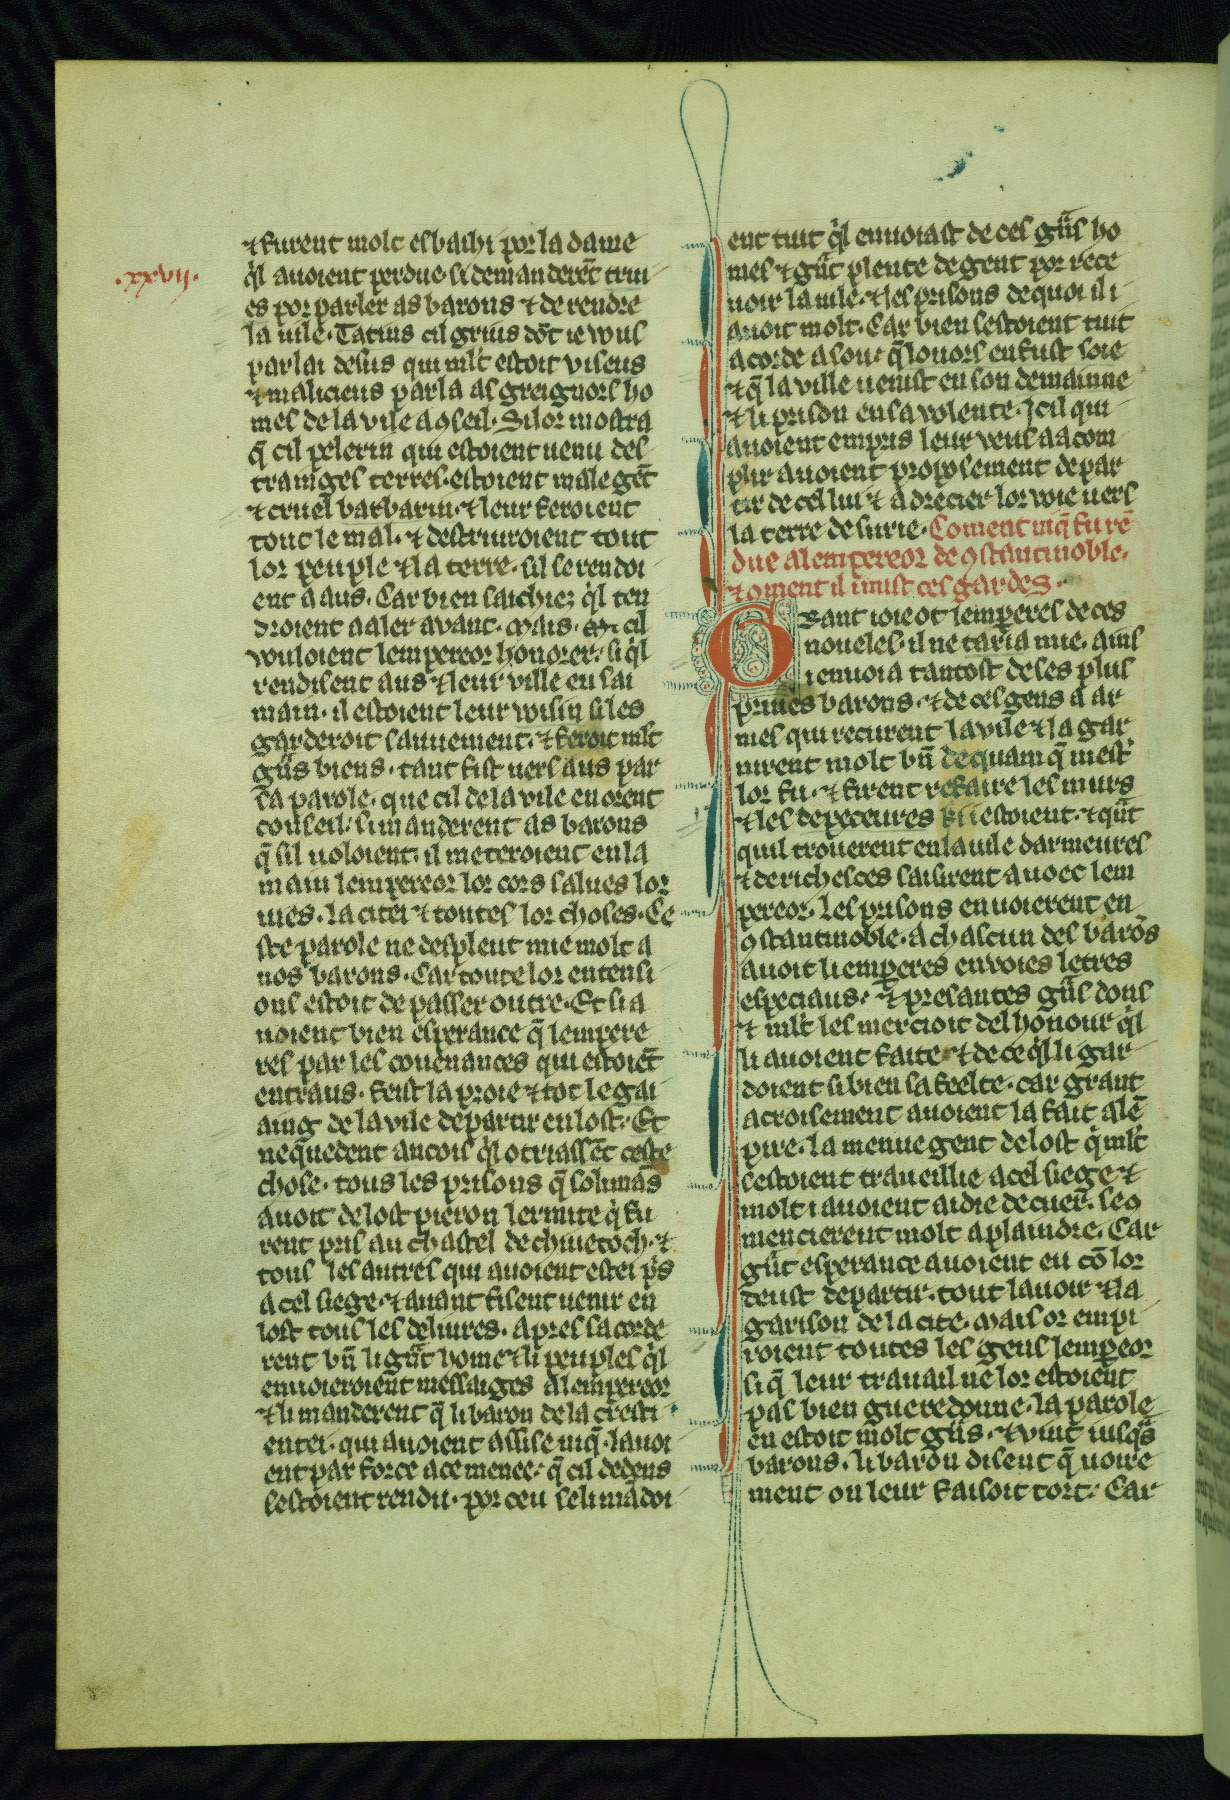 .xxvii.
⁊ furent molt esbaihi por la dame
q̉l auoient perdue. si demanderēt trui
es por parler as barons ⁊ de rendre
la uile. Tatins cil grius dōt ie wus
parlai desus qui ml't estoit viseus
⁊ maliciens parla as greignors ho
mes de la vile a ꝯseil. Si lor mostra
q̄ cil pelerin qui estoient uenu des
traniges terres. estoient male gēt
⁊ cruel barbarin. ⁊ leur feroient
tout le mal. ⁊ destruiroient tout
lor peuple ⁊ la terre. sil se rendoi
ent a aus. Car bien saichiez q̉l ten
droient a aler auant. Mais. cil
wuloient lempereor honorer. si q̉l
rendisent aus ⁊ leur ville en sai
main. il estoient leur wisin si les
garderoit sauuement. ⁊ feroit ml't
gn̄s biens. tant fist uers aus par
sa parole. que cil de la vile en orent
conseil. si manderent as barons
q̄ sil uoloient. il meteroient en la
main lempereor lor cors salues lor
uies. la citei ⁊ toutes lor choses. Ce
ste parole ne despleut mie molt a
nos barons. Car toute lor entensi
ons estoit de passer outre. Et si a
uoient bien esperance q̄ lempere
res par les couenances qui estoiēt
entraus. feust la proie ⁊ tot le gai
aing de la vile departir en lost. Et
neq̄uedent ancois q̉l otriassēt ceste
chose. tous les prisons q̄ solimās
auoit de lost pieron lermite q̉ fu
rent pris au chastel de chiuetoch. ⁊
tous les autres qui auoient estei p̉s
a cel siege. ⁊ auant fisent uenir en
lost tous les deliures. apres sacorde
rent bn̄ li gn̄t home ⁊ li peuples q̉l
enuoieroient messaiges a lempereor
⁊ li manderent q̄ li baron de la cresti
entei. qui auoient assise niq̄. lauoi
ent par force a ce menee. q̄ cil dedens
sestoient rendu. por ceu se li mādoi
ent tuit q̉l enuoiast de ces gn̄s ho
mes ⁊ gn̄t plente de gent por rece
uoir la uile. ⁊ les prisons de quoi il i
auoit molt. Car bien sestoient tuit
acorde a son. q̄ louors en fust soie
⁊ q̄ la ville uenist en son demainne
⁊ li prison en sa volente. Jcil qui
auoient empris leur veus a acom
plir auoient proposement de par
tir de cel lui ⁊ a drecier lor voie uers
la terre de surie. Coment niq̄ fu rē
due a lempereor de ꝯstantinoble.
⁊ ꝯment il i mist ces gardes.
Grant ioie ot lemperes de ces
noueles. il ne taria mie. ains
i enuoia tantost de ses plus
priues barons. ⁊ de ces gens a ar
mes qui recurent la vile ⁊ la gar
nirent molt bn̄ de quam q̄ mest̉
lor fu. ⁊ firent refaire les murs
⁊ les depeceures estoient. ⁊ qn̄t
quil trouerent en la uile darmeures
⁊ de richesces saisirent auoec lem
pereor. les prisons enuoierent en
ꝯstantinoble. a chascun des barōs
auoit li emperes envoies letres
especiaus. ⁊ presantes gn̄s dons
⁊ ml't les mercioit del honour q̉l
li auoient faite. ⁊ de ce q̉l li gar
doient si bien sa feelte. car grant
acroisement auoient la fait a lē
pire. la menue gent de lost q̉ ml't
sestoient traueillie a cel siege ⁊
molt i auoient aidie de cuer. se ꝯ
mencierent molt a plaindre. Car
gn̄t esperance auoient eu cō lor
deust departir. tout lauoir ⁊ la
garison de la cite. Mais or empi
roient toutes les gens lempeor
si q̄ leur trauail ne lor estoient
pas bien gueredonne. la parole
en estoit molt gn̄s. ⁊ vint iusq̄s
barons. li baron disent q̄ uoire
ment on leur faisoit tort. Car